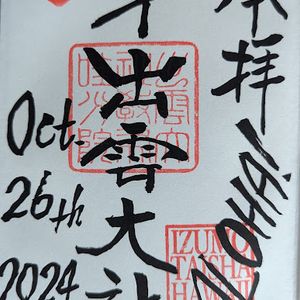 奉拝
ALOHA!
出雲大社
IZUMO
TAISHA
HAWAII
Oct.
26th
2024